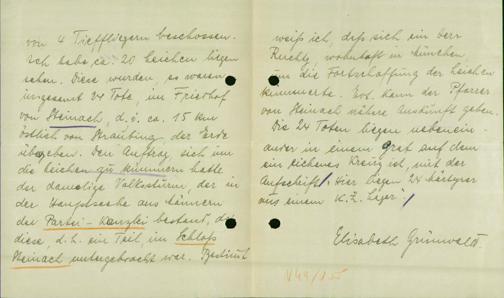 von 4 Tieffliegern beschossen.
Ich habe ca. 20 Leichen liegen
sehen. Diese wurden, es waren
insgesamt 24 Tote, im Friedhof
von Steinach, d.i. ca. 15 km
östlich von Straubing, der Erde
übergeben. Den Auftrag, sich um
die Leichen zu kümmern hatte
der damalige Volkssturm, der in
der Hauptsache aus Männern
der Partei-Kanzlei bestand, da
diese, d.h. ein Teil, im Schloß
Steinach untergebracht war. Bestimmt
weiß ich, daß sich ein Herr
wohnhaft in München,
um die Fortschaffung der Leichen
kümmerte. Evt. kann der Pfarrer
von Steinach nähere Auskunft geben.
Die 24 Toten liegen nebenein
ander in einem Grab auf dem
ein eichenes Kreuz ist, mit der
Aufschrift: "Hier liegen 24 Märtyrer
aus einem K.Z. Lager."
Elisabeth Grünwald